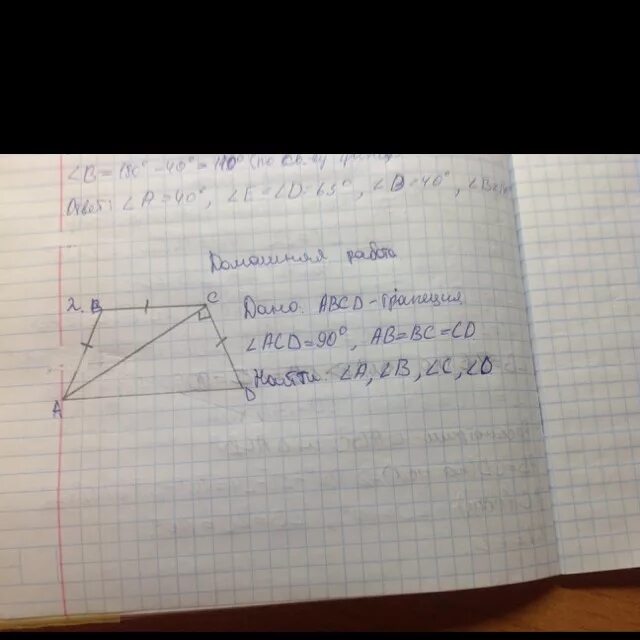 ∠B = 180° - 40° = 140° (по
Ответ: ∠A = 40°, ∠C = ∠D = 65°, ∠D = 40°,
Домашняя работа
2. B C
A D
Дано: ABCD - трапеция
∠ACD = 90°, AB = BC = CD
Найти: ∠A, ∠B, ∠C, ∠D